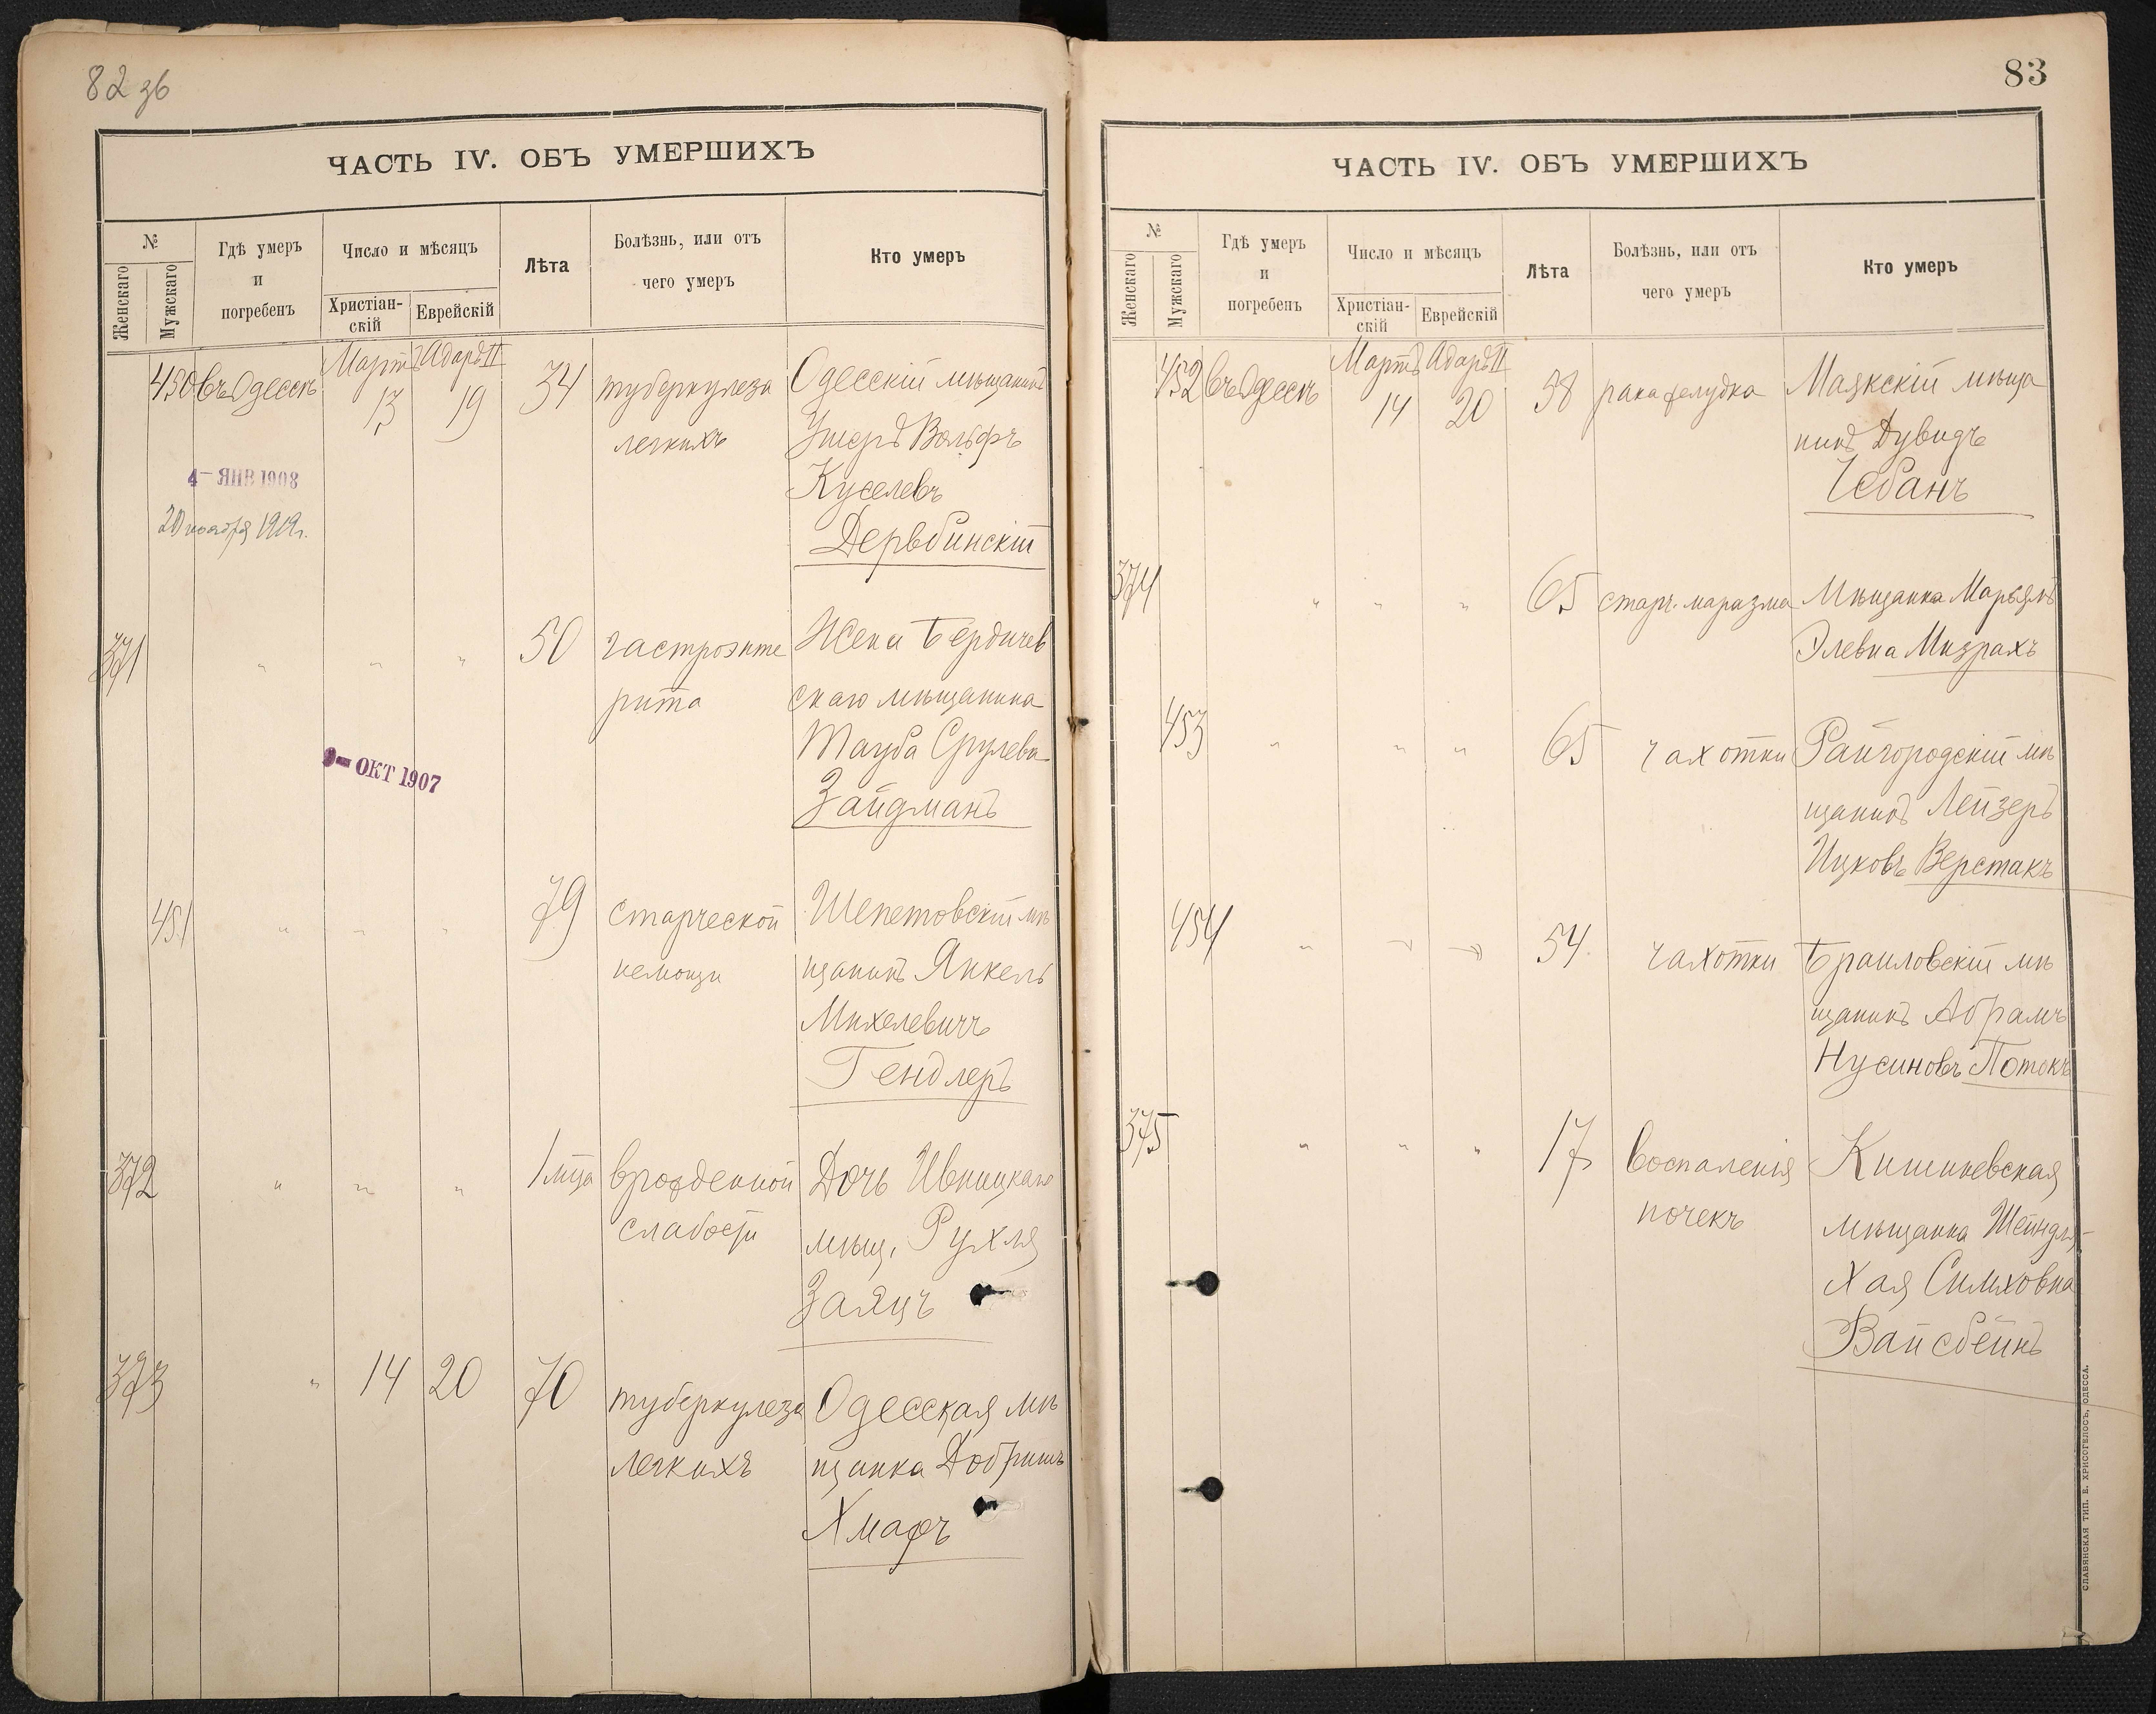 82 зв
ЧАСТЬ IV. ОБЪ УМЕРШИХЪ
№
Женскаго
Мужскаго
Гдѣ умеръ
и
погребенъ
Число и мѣсяцъ
Христіан-
скій
Еврейскій
Лѣта
Болѣзнь, или отъ
чего умеръ
Кто умеръ
450 въ Одессѣ Мартъ 13 Адаръ II 19 34 туберкулеза Одесскій мѣщанинъ
легкихъ Ушеръ Вольфъ
Куселевъ
Дербинскій
4- ЯНВ 1908
20 ноября 1919г.
371 " " " 50 гастроэнте Жена Бердичев
рита скаго мѣщанина
Тауба Срулева
Зайдманъ
9- ОКТ 1907
451 " " " 79 старческой Шепетовскій мѣ
немощи щанинъ Янкель
Михелевичъ
Гендлеръ
372 " " " 1 мца врожденной Дочь Ивницкаго
слабости мѣщ. Рухля
Заяцъ
373 " 14 20 70 туберкулеза Одесская мѣ
легкихъ щанка Добришъ
Хмаръ
83
ЧАСТЬ IV. ОБЪ УМЕРШИХЪ
№
Женскаго
Мужскаго
Гдѣ умеръ
и
погребенъ
Число и мѣсяцъ
Христіан-
скій
Еврейскій
Лѣта
Болѣзнь, или отъ
чего умеръ
Кто умеръ
452 въ Одессѣ Мартъ 14 Адаръ II 20 58 рака желудка Маякскій мѣща
нинъ Дувидъ
Чебанъ
374 " " " 65 старч. маразма Мѣщанка Марьямъ
Элевна Мизрахъ
453 " " " 65 чахотки Райгородскій мѣ
щанинъ Лейзеръ
Ицковъ Верстакъ
454 " " " 54 чахотки Браиловскій мѣ
щанинъ Абрамъ
Нусиновъ Потокъ
375 " " " 17 воспаленія Кишиневская
почекъ мѣщанка Шейндля-
Хая Симховна
Вайсбейнъ
СЛАВЯНСКАЯ ТИП. Е. ХРИСОГЕЛОСЪ, ОДЕССА.